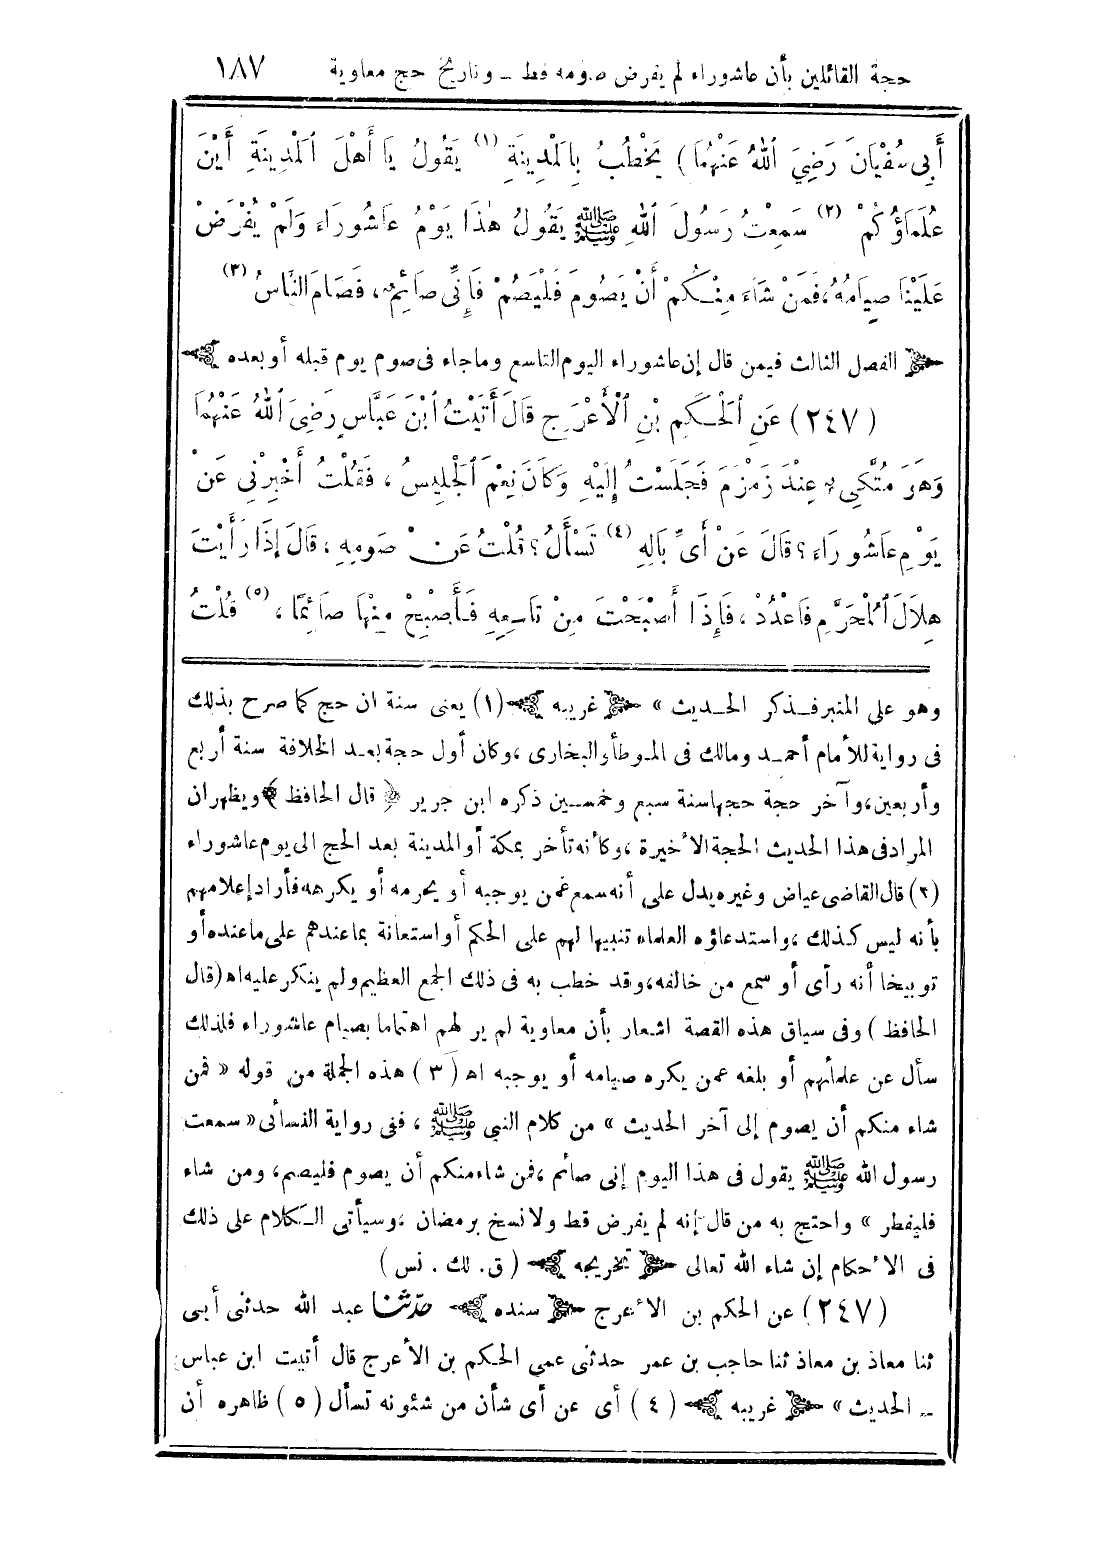 حجة القائلين بأن عاشوراء لم يفرض صومه قط ــ وتاريخ حج معاوية ١٨٧
أَبِي سُفْيَانَ رَضِيَ اللهُ عَنْهُمَا) يَخْطُبُ بِالْمَدِينَةِ (١) يَقُولُ يَا أَهْلَ الْمَدِينَةِ أَيْنَ
عُلَمَاؤُكُمْ (٢) سَمِعْتُ رَسُولَ اللهِ ﷺ يَقُولُ هٰذَا يَوْمُ عَاشُورَاءَ وَلَمْ يُفْرَضْ
عَلَيْنَا صِيَامُهُ، فَمَنْ شَاءَ مِنْكُمْ أَنْ يَصُومَ فَلْيَصُمْ فَإِنِّي صَائِمٌ، فَصَامَ النَّاسُ (٣)
﴿ الفصل الثالث فيمن قال إن عاشوراء اليوم التاسع وما جاء فى صوم يوم قبله أو بعده ﴾
(٢٤٧) عَنِ الْحَكَمِ بْنِ الْأَعْرَجِ قَالَ أَتَيْتُ ابْنَ عَبَّاسٍ رَضِيَ اللهُ عَنْهُمَا
وَهُوَ مُتَّكِىءٌ عِنْدَ زَمْزَمَ فَجَلَسْتُ إِلَيْهِ وَكَانَ نِعْمَ الْجَلِيسُ، فَقُلْتُ أَخْبِرْنِي عَنْ
يَوْمِ عَاشُورَاءَ؟ قَالَ عَنْ أَىِّ بَالِهِ (٤) تَسْأَلُ؟ قُلْتُ عَنْ صَوْمِهِ، قَالَ إِذَا رَأَيْتَ
هِلَالَ الْمُحَرَّمِ فَاعْدُدْ، فَإِذَا أَصْبَحْتَ مِنْ تَاسِعِهِ فَأَصْبِحْ مِنْهَا صَائِمًا، (٥) قُلْتُ
وهو على المنبر فـذكر الحـديث » ﴿ غريبه ﴾ (١) يعنى سنة ان حج كما صرح بذلك
فى رواية للأمام أحمـد ومالك فى المـوطأ والبخارى، وكان أول حجة بعـد الخلافة سنة أربع
وأربعين، وآخر حجة حجها سنة سبع وخمسين ذكره ابن جرير ﴿ قال الحافظ ﴾ ويظهر ان
المراد فى هذا الحديث الحجة الأخيرة، وكأنه تأخر بمكة أو المدينة بعد الحج الى يوم عاشوراء
(٢) قال القاضى عياض وغيره يدل على أنه سمع عمن يوجبه أو يحرمه أو يكرهه فأراد إعلامهم
بأنه ليس كـذلك، واستدعاؤه العلماء تنبيها لهم على الحكم أو استعانة بما عندهم على ما عنده أو
توبيخا أنه رأى أو سمع من خالفه، وقد خطب به فى ذلك الجمع العظيم ولم ينكر عليه اه (قال
الحافظ) وفى سياق هذه القصة اشعار بأن معاوية لم ير لهم اهتماما بصيام عاشوراء فلذلك
سأل عن علمائهم أو بلغه عمن يكره صيامه أو يوجبه اه (٣) هذه الجملة من قوله « فمن
شاء منكم أن يصوم إلى آخر الحديث » من كلام النبى ﷺ، ففى رواية النسائى « سمعت
رسول الله ﷺ يقول فى هذا اليوم إنى صائم، فمن شاء منكم أن يصوم فليصم، ومن شاء
فليفطر » واحتج به من قال إنه لم يفرض قط ولا نسخ برمضان، وسيأتى الـكلام على ذلك
فى الأحكام إن شاء الله تعالى ﴿ تخريجه ﴾ (ق. لك. نس)
(٢٤٧) عن الحكم بن الأعرج ﴿ سنده ﴾ حدّثنا عبد الله حدثنى أبى
ثنا معاذ بن معاذ ثنا حاجب بن عمر حدثنى عمى الحكم بن الأعرج قال أتيت ابن عباس
ــ الحديث » ﴿ غريبه ﴾ (٤) أى عن أى شأن من شئونه تسأل (٥) ظاهره أن